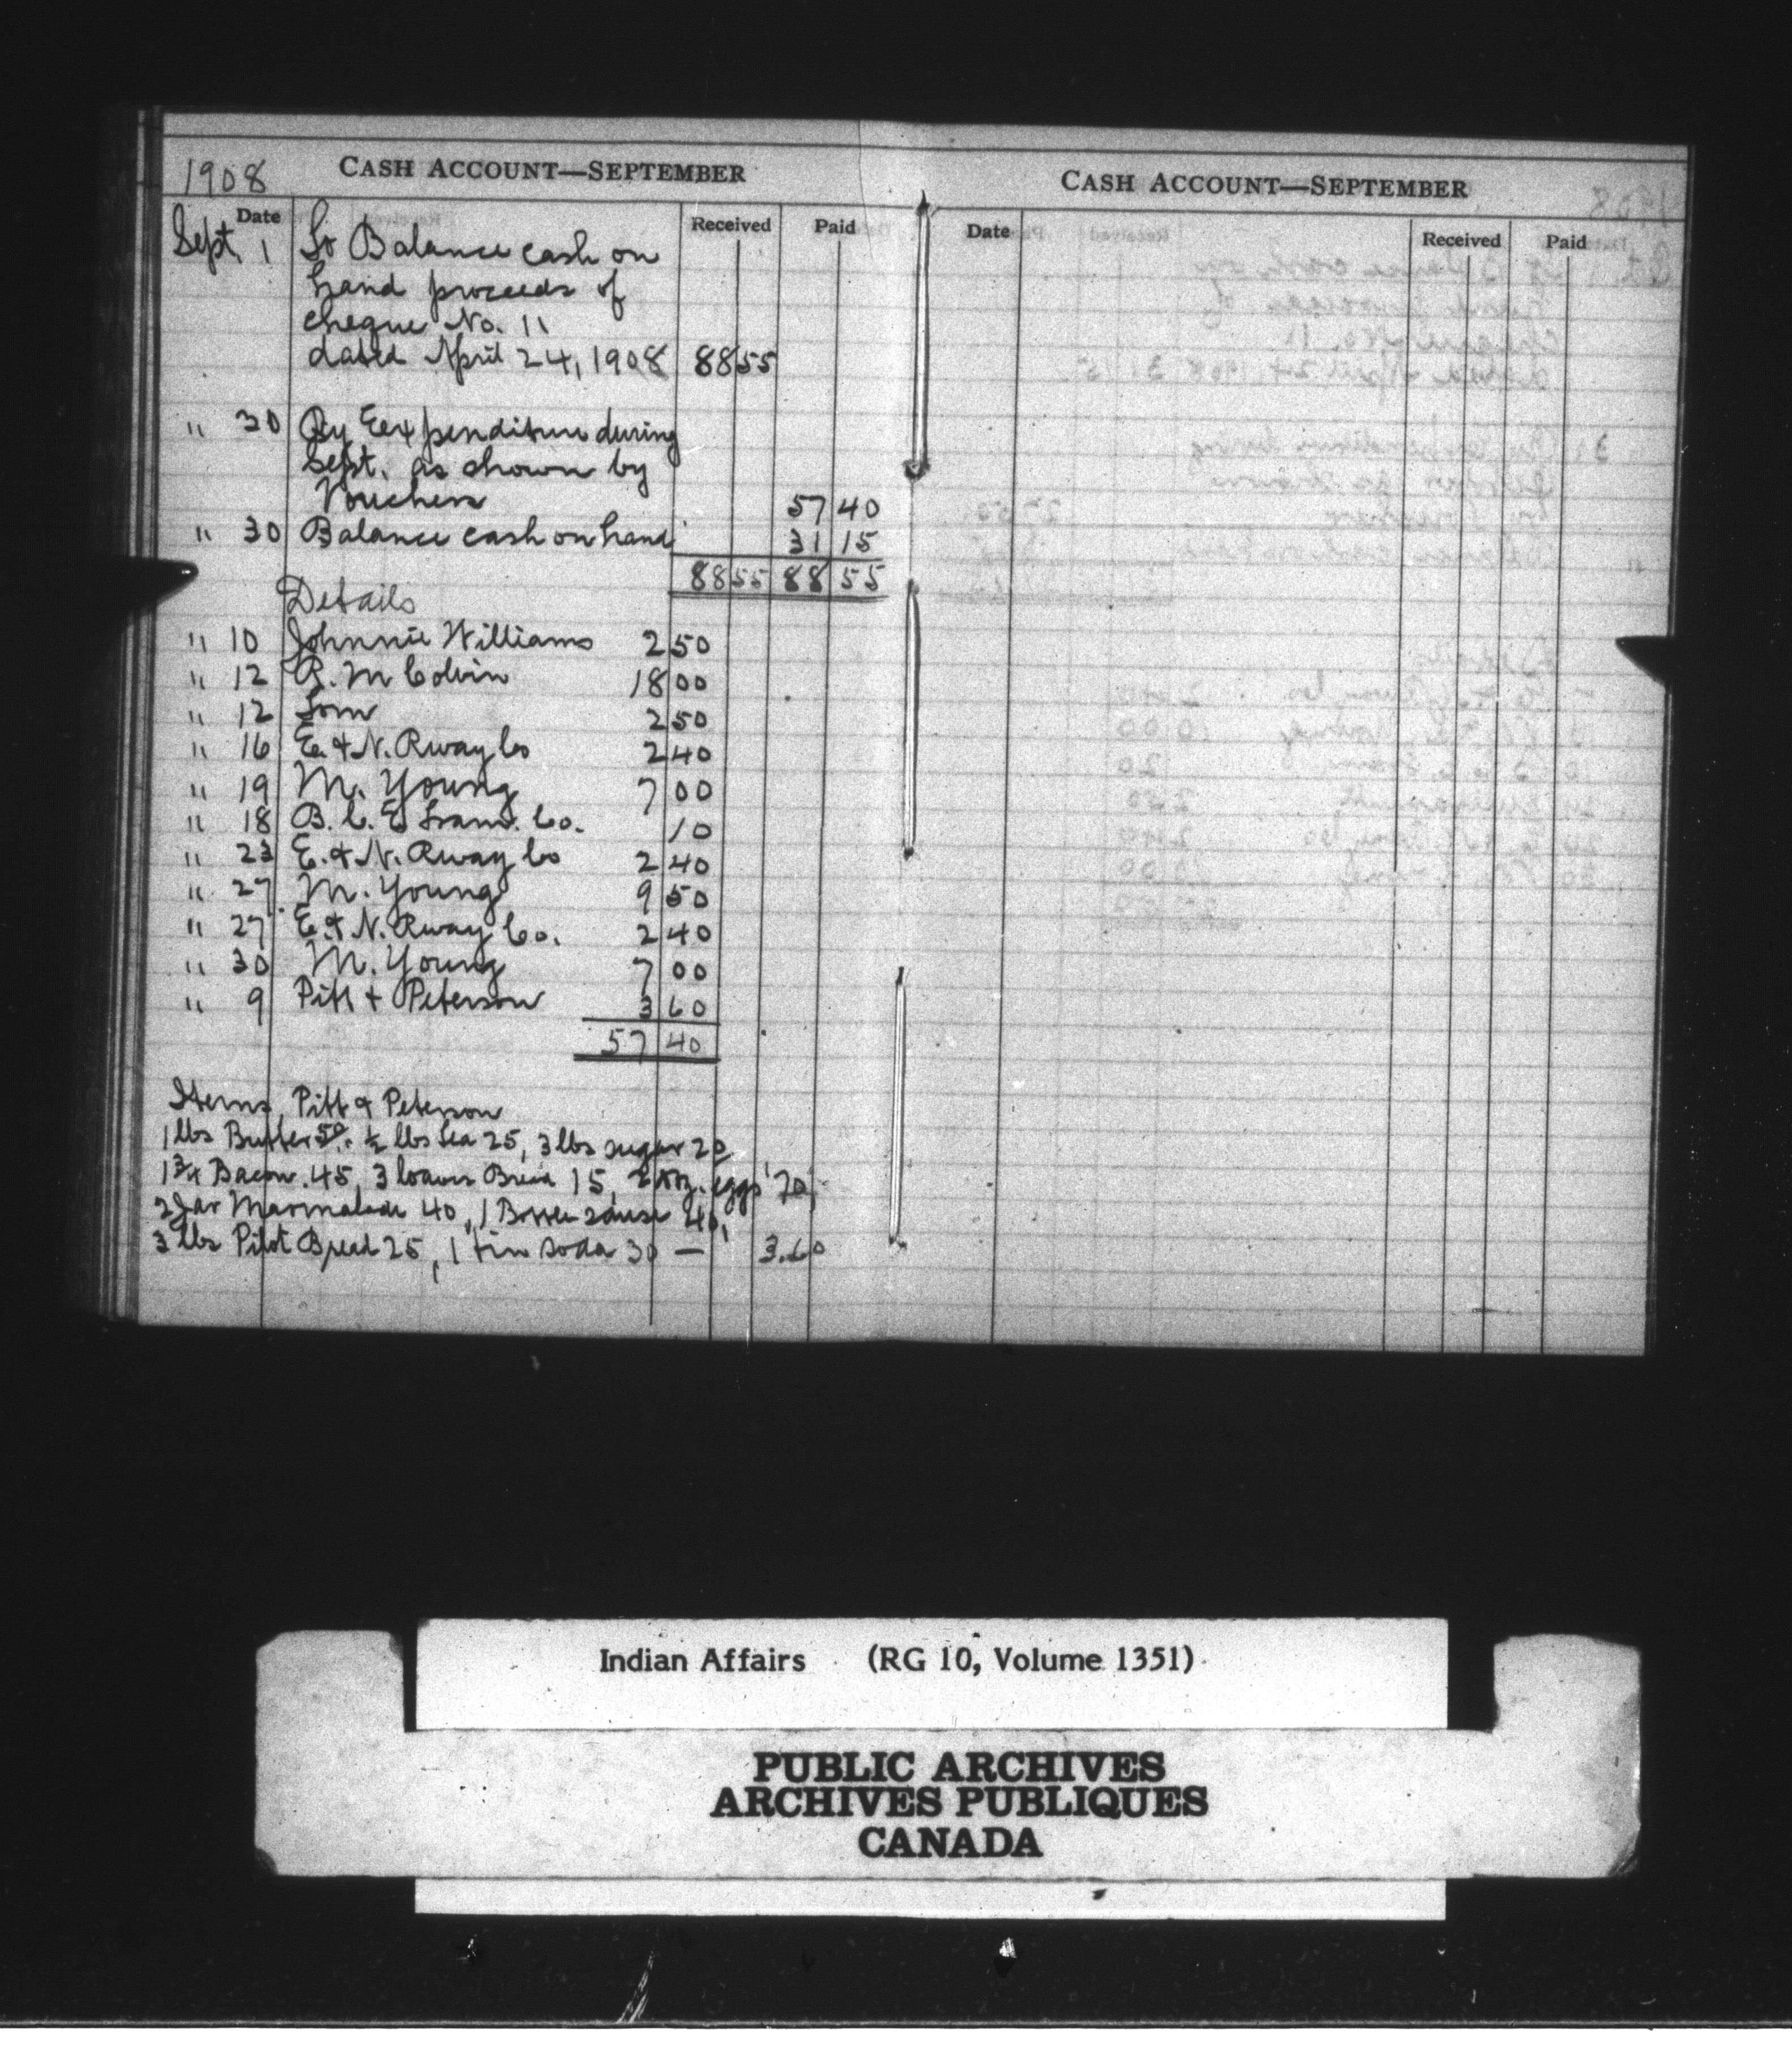 1908 CASH ACCOUNT—SEPTEMBER
Date Received Paid
Sept. 1 To Balance cash on
hand proceeds of
cheque No. 11
dated April 24, 1908 88 55
" 30 By Eexpenditure during
Sept. as shown by
Vouchers 57 40
" 30 Balance cash on hand 31 15
88 55 88 55
Details
" 10 Johnnie Williams 2 50
" 12 R. M Colvin 18 00
" 12 Tom 2 50
" 16 E. & N. Rway Co 2 40
" 19 M. Young 7 00
" 18 B. C. E Tram. Co. 10
" 23 E. & N. Rway Co 2 40
" 27 M. Young 9 50
" 27 E. & N. Rway Co. 2 40
" 30 M. Young 7 00
" 9 Pitt & Peterson 3 60
57 40
Items, Pitt & Peterson
1 lbs Butter 50. ½ lbs tea 25, 3 lbs sugar 20
1¾ Bacon .45, 3 loaves Bread 15, 2 doz. eggs 70,
2 Jar Marmalade 40, 1 Bottle sause 40,
3 lbs Pilot Bread 25, 1 tin soda 30 — 3.60
CASH ACCOUNT—SEPTEMBER
Date Received Paid
Indian Affairs (RG 10, Volume 1351)
PUBLIC ARCHIVES
ARCHIVES PUBLIQUES
CANADA